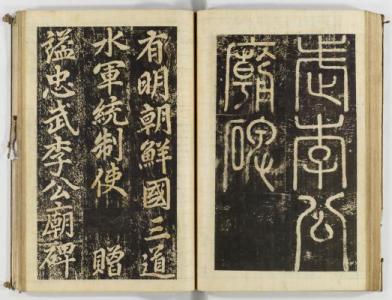 武李公
廟碑
有明朝鮮國三道
水軍統制使　贈
諡忠武李公廟碑